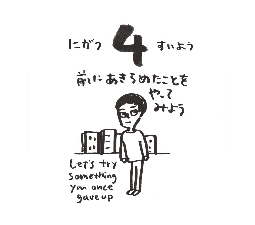 にがつ 4 すいよう
前にあきらめたことを
やって
みよう
Let's try
something
you once
gave up